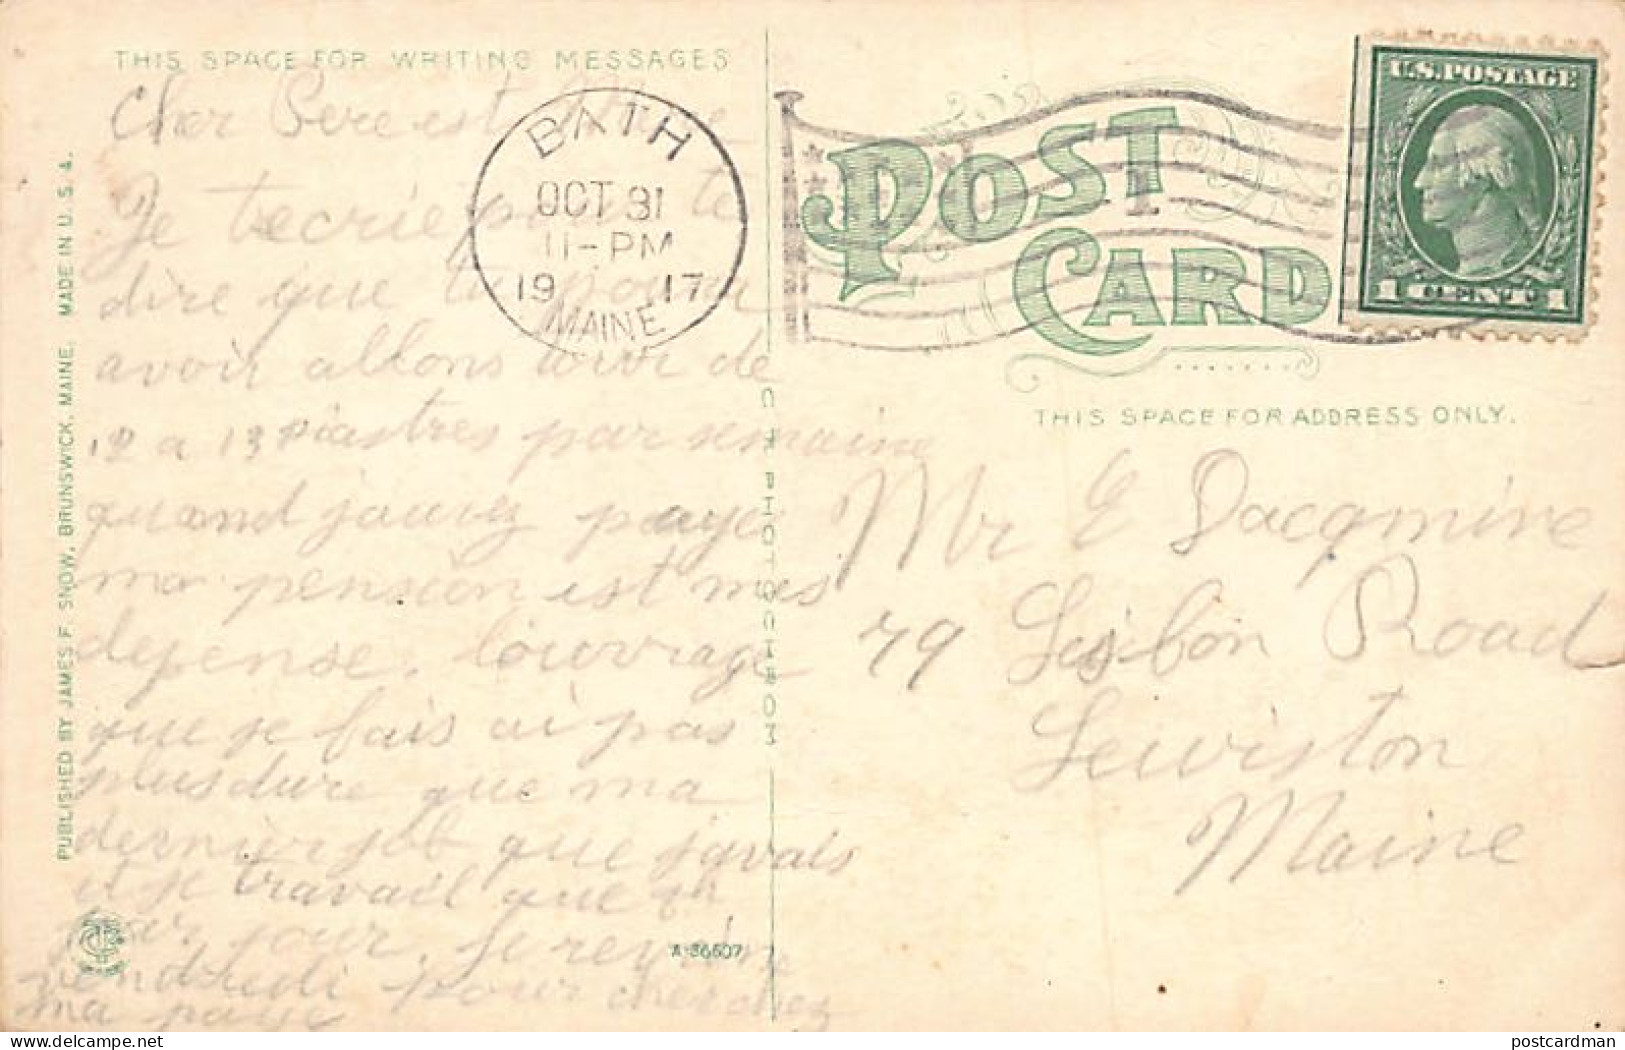 THIS SPACE FOR WRITING MESSAGES
Cher Pere est
Je tecrie pour te
dire que tu pourra
avoir allons d
12 a 13 piastres par semaine
quand jaurez payé
ma pension est mes
depense. louvrage
que je fais ai pas
plus dure que ma
dernier job que javais
je travail que
jour. Je
vendredi pour cherchez
ma paye
PUBLISHED BY JAMES F. SNOW, BRUNSWICK, MAINE. MADE IN U. S. A.
C. T. PHOTOCHROM
A-36607
BATH
OCT 31
11-PM
19 17
MAINE
POST CARD
U.S. POSTAGE
1 CENT 1
THIS SPACE FOR ADDRESS ONLY.
Mr E Dacqmine
79 Lisbon Road
Lewiston
Maine
postcardman